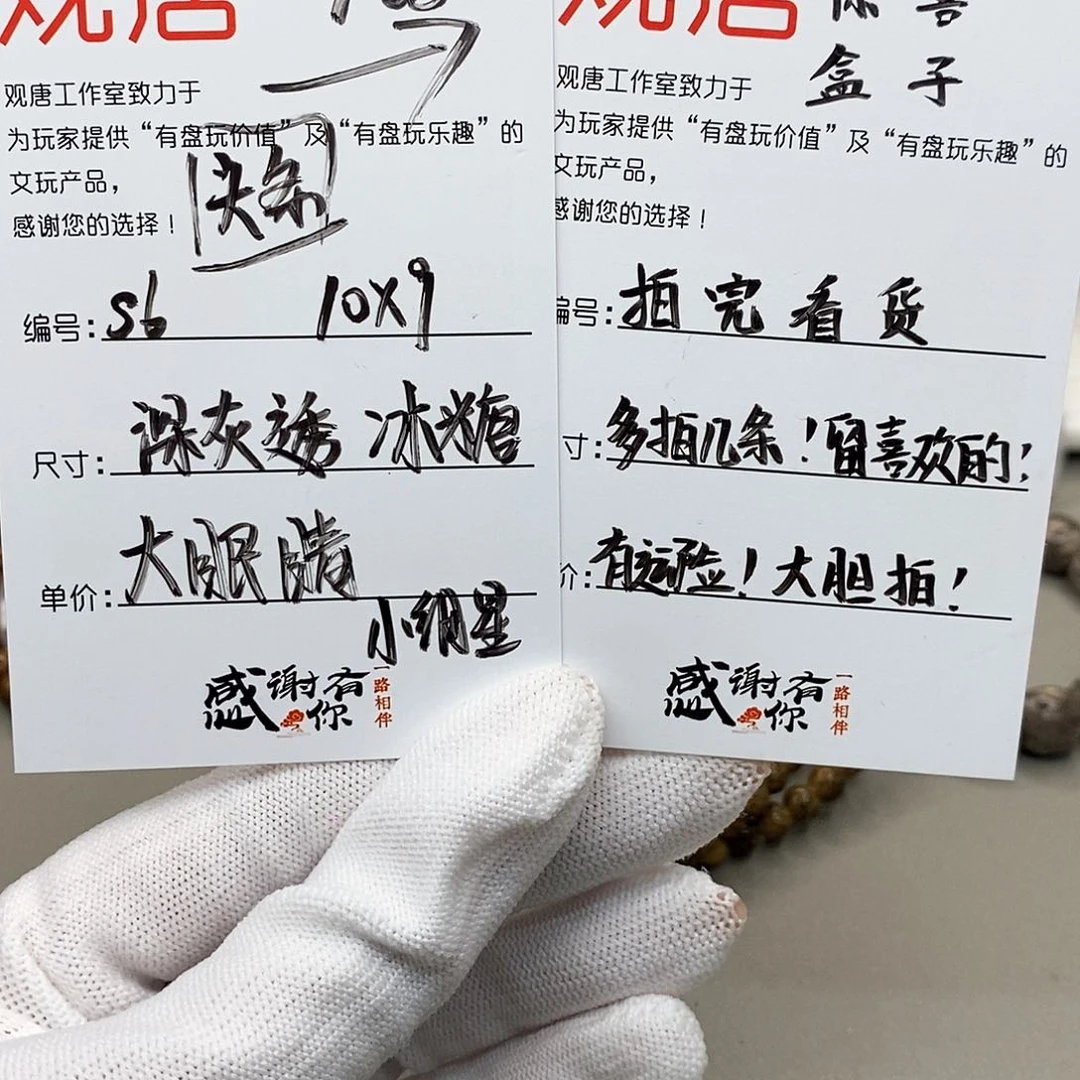 观唐
观唐工作室致力于
为玩家提供“有盘玩价值”及“有盘玩乐趣”的
文玩产品，
感谢您的选择！
头条
编号：S6 10X9
尺寸：深灰透 冰糖
单价：大眼睛
小绸星
感谢有你
一路相伴
观唐 惊喜
盒子
观唐工作室致力于
为玩家提供“有盘玩价值”及“有盘玩乐趣”的
文玩产品，
感谢您的选择！
编号：拍完看货
寸：多拍几条！留喜欢的！
价：有运险！大胆拍！
感谢有你
一路相伴